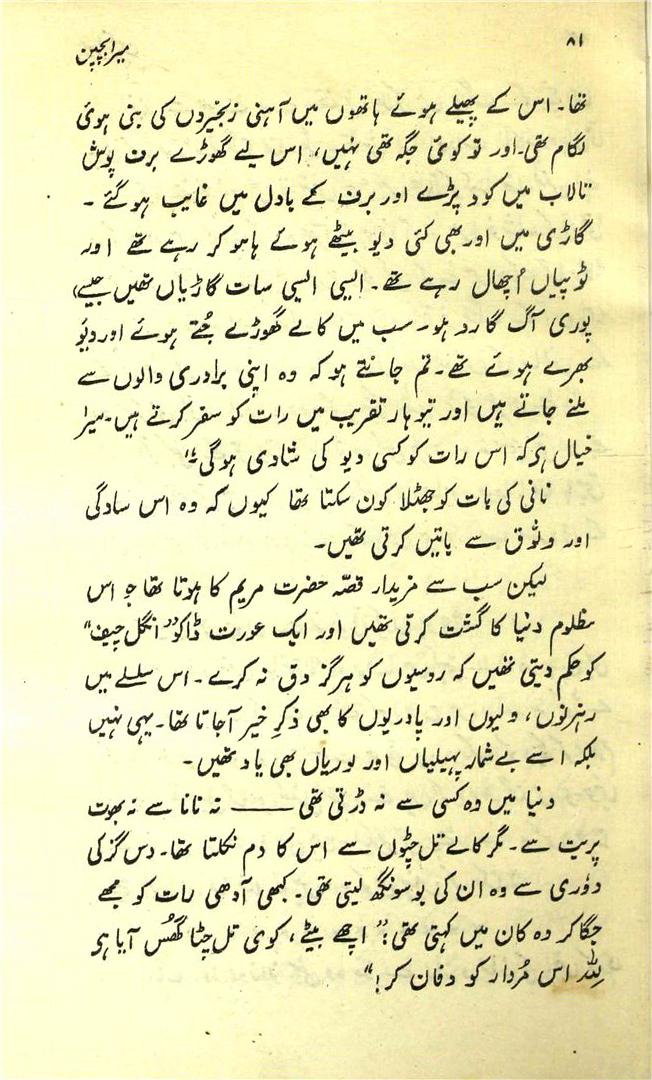 ۸۱
میرا بچپن
تھا۔ اس کے پھیلے ہوئے ہاتھوں میں آہنی زنجیروں کی بنی ہوئی
لگام تھی۔ اور تو کوئی جگہ تھی نہیں، اس لیے گھوڑے برف پوش
تالاب میں کود پڑے اور برف کے بادل میں غایب ہو گئے ۔
گاڑی میں اور بھی کئی دیو بیٹھے ہوئے ہاہو کر رہے تھے اور
ٹوپیاں اُچھال رہے تھے۔ ایسی ایسی سات گاڑیاں تھیں جیسے
پوری آگ گارد ہو۔ سب میں کالے گھوڑے جُتے ہوئے اور دیو
بھرے ہوئے تھے۔ تم جانتے ہو کہ وہ اپنی برادری والوں سے
ملنے جاتے ہیں اور تیوہار تقریب میں رات کو سفر کرتے ہیں۔ میرا
خیال ہو کہ اس رات کو کسی دیو کی شادی ہوگی"
نانی کی بات کو جھٹلا کون سکتا تھا کیوں کہ وہ اس سادگی
اور وثوق سے باتیں کرتی تھیں۔
لیکن سب سے مزیدار قصّہ حضرت مریم کا ہوتا تھا جو اس
مظلوم دنیا کا گشت کرتی تھیں اور ایک عورت ڈاکو "انگل چیف"
کو حکم دیتی تھیں کہ روسیوں کو ہرگز دق نہ کرے ۔ اس سلسلے میں
رہزنوں، ولیوں اور پادریوں کا بھی ذکرِ خیر آجاتا تھا۔ یہی نہیں
بلکہ اسے بے شمار پہیلیاں اور لوریاں بھی یاد تھیں ۔
دنیا میں وہ کسی سے نہ ڈرتی تھی —— نہ نانا سے نہ بھوت
پریت سے۔ مگر کالے تل چٹوں سے اس کا دم نکلتا تھا۔ دس گز کی
دوٗری سے وہ ان کی بو سونگھ لیتی تھی۔ کبھی آدھی رات کو مجھے
جگا کر وہ کان میں کہتی تھی: "اچھے بیٹے، کوئی تل چٹا گھُس آیا ہو
لِلّٰہ اس مُردار کو دفان کر!"